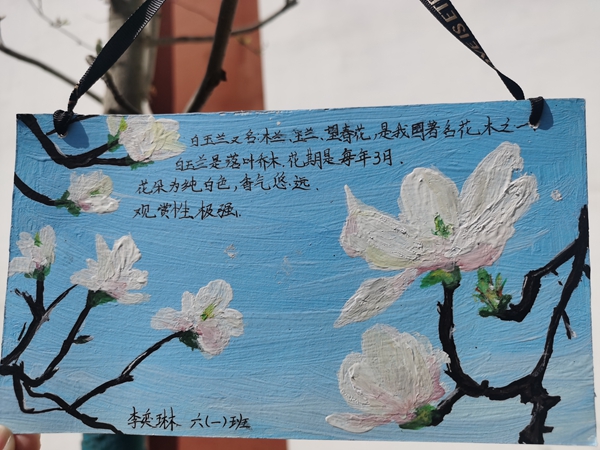 白玉兰又名木兰、玉兰、望春花,是我国著名花木之一
白玉兰是落叶乔木.花期是每年3月.
花朵为纯白色,香气悠远.
观赏性极强.
李奕琳 六(一)班